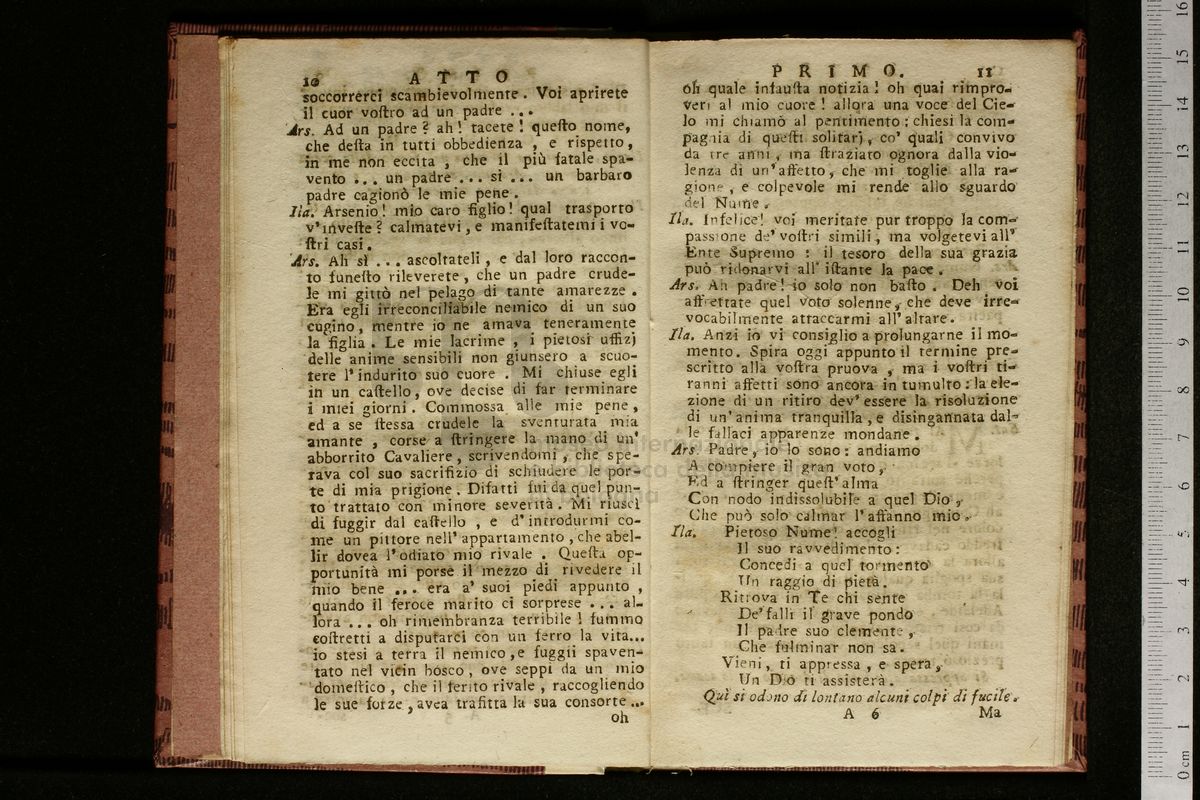 10 ATTO
soccorrerci scambievolmente. Voi aprirete
il cuor voſtro ad un padre ...
Ars. Ad un padre? ah! tacete! queſto nome,
che deſta in tutti obbedienza, e riſpetto,
in me non eccita, che il più fatale spa-
vento ... un padre ... sì ... un barbaro
padre cagionò le mie pene.
Ila. Arsenio! mio caro figlio! qual trasporto
v'inveſte? calmatevi, e manifeſtatemi i vo-
ſtri casi.
Ars. Ah sì ... ascoltateli, e dal loro raccon-
to funeſto rileverete, che un padre crude-
le mi gittò nel pelago di tante amarezze.
Era egli irreconciliabile nemico di un suo
cugino, mentre io ne amava teneramente
la figlia. Le mie lacrime, i pietosi uffizj
delle anime sensibili non giunsero a scuo-
tere l'indurito suo cuore. Mi chiuse egli
in un caſtello, ove decise di far terminare
i miei giorni. Commossa alle mie pene,
ed a se ſtessa crudele la sventurata mia
amante, corse a ſtringere la mano di un'
abborrito Cavaliere, scrivendomi, che spe-
rava col suo sacrifizio di schiudere le por-
te di mia prigione. Difatti fui da quel pun-
to trattato con minore severità. Mi riuscì
di fuggir dal caſtello, e d'introdurmi co-
me un pittore nell'appartamento, che abel-
lir dovea l'odiato mio rivale. Queſta op-
portunità mi porse il mezzo di rivedere il
mio bene ... era a' suoi piedi appunto,
quando il feroce marito ci sorprese ... al-
lora ... oh rimembranza terribile! fummo
coſtretti a disputarci con un ferro la vita...
io stesi a terra il nemico, e fuggii spaven-
tato nel vicin bosco, ove seppi da un mio
domeſtico, che il ferito rivale, raccogliendo
le sue forze, avea trafitta la sua consorte...
oh
PRIMO. 11
oh quale infauſta notizia! oh quai rimpro-
veri al mio cuore! allora una voce del Cie-
lo mi chiamò al pentimento: chiesi la com-
pagnia di queſti solitarj, co' quali convivo
da tre anni, ma ſtraziato ognora dalla vio-
lenza di un'affetto, che mi toglie alla ra-
gione, e colpevole mi rende allo sguardo
del Nume.
Ila. Infelice! voi meritate pur troppo la com-
passione de' voſtri simili, ma volgetevi all'
Ente Supremo: il tesoro della sua grazia
può ridonarvi all' iſtante la pace.
Ars. Ah padre! io solo non baſto. Deh voi
affrettate quel voto solenne, che deve irre-
vocabilmente attraccarmi all'altare.
Ila. Anzi io vi consiglio a prolungarne il mo-
mento. Spira oggi appunto il termine pre-
scritto alla voſtra pruova, ma i voſtri ti-
ranni affetti sono ancora in tumulto: la ele-
zione di un ritiro dev'essere la risoluzione
di un'anima tranquilla, e disingannata dal-
le fallaci apparenze mondane.
Ars. Padre, io lo sono: andiamo
A compiere il gran voto,
Ed a ſtringer queſt'alma
Con nodo indissolubile a quel Dio,
Che può solo calmar l'affanno mio.
Ila. Pietoso Nume! accogli
Il suo ravvedimento:
Concedi a quel tormento
Un raggio di pietà.
Ritrova in Te chi sente
De' falli il grave pondo
Il padre suo clemente,
Che fulminar non sa.
Vieni, ti appressa, e spera,
Un Dio ti assisterà.
Quì si odono di lontano alcuni colpi di fucile.
A 6 Ma